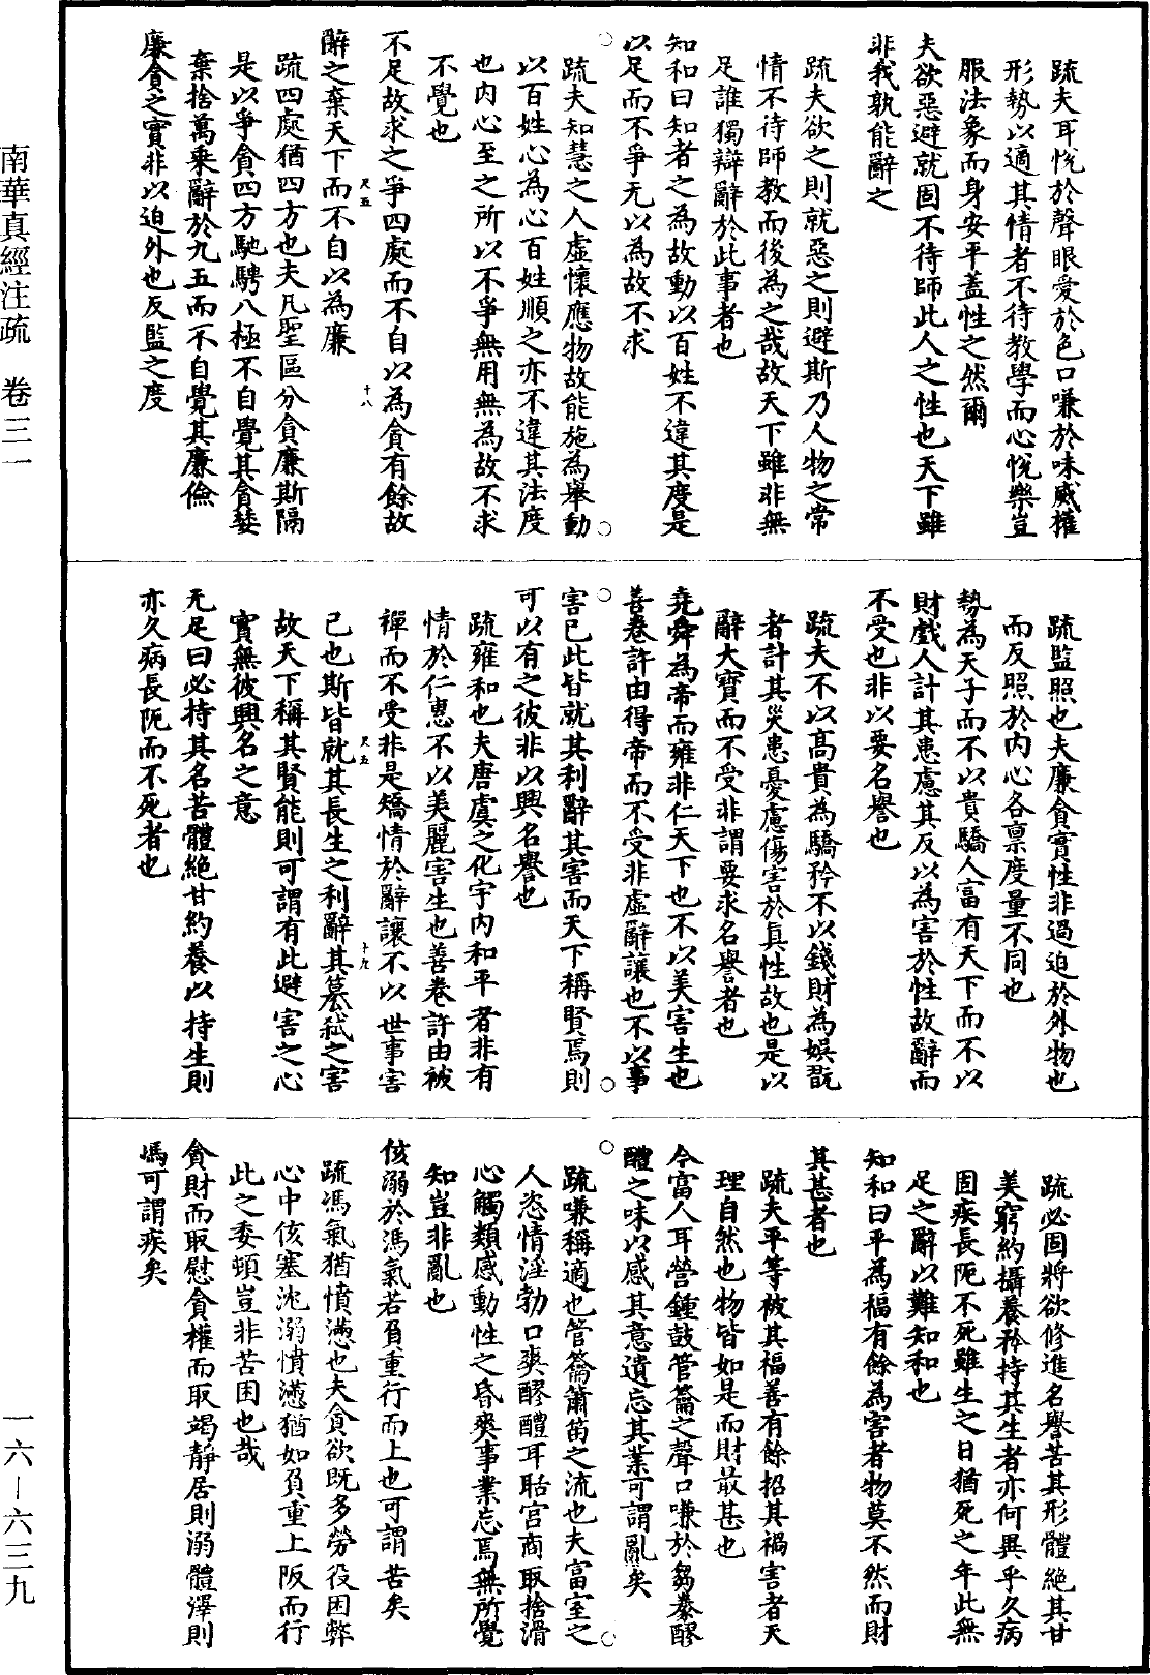 疏夫耳悅於聲眼愛於色口嗛於味威權
形勢以適其情者不待教學而心悅樂豈
服法象而身安乎蓋性之然爾
夫欲惡避就固不待師此人之性也天下雖
非我孰能辭之
疏夫欲之則就惡之則避斯乃人物之常
情不待師教而後為之哉故天下雖非無
足誰獨辯辭於此事者也
知和曰知者之為故動以百姓不違其度是
以足而不爭无以為故不求
疏夫知慧之人虛懷應物故能施為舉動
以百姓心為心百姓順之亦不違其法度
也内心至之所以不爭無用無為故不求
不覺也
不足故求之爭四處而不自以為貪有餘故
辭之棄天下而不自以為廉
疏四處猶四方也夫凡聖區分貪廉斯隔
是以爭貪四方馳騁八極不自覺其貪婪
棄捨萬乘辭於九五而不自覺其廉儉
廉貪之實非以迫外也反監之度
尺五
十八
疏監照也夫廉貪實性非過迫於外物也
而反照於内心各禀度量不同也
勢為天子而不以貴驕人富有天下而不以
財戲人計其患慮其反以為害於性故辭而
不受也非以要名譽也
疏夫不以高貴為驕矜不以錢財為娛翫
者計其災患憂慮傷害於真性故也是以
辭大寶而不受非謂要求名譽者也
堯舜為帝而雍非仁天下也不以美害生也
善卷許由得帝而不受非虛辭讓也不以事
害己此皆就其利辭其害而天下稱賢焉則
可以有之彼非以興名譽也
疏雍和也夫唐虞之化宇内和平者非有
情於仁惠不以美麗害生也善卷許由被
禪而不受非是矯情於辭讓不以世事害
己也斯皆就其長生之利辭其篡弑之害
故天下稱其賢能則可謂有此避害之心
實無彼興名之意
无足曰必持其名苦體絶甘約養以持生則
亦久病長阨而不死者也
尺五
十九
疏必固將欲修進名譽苦其形體絶其甘
美窮約攝養矜持其生者亦何異乎久病
固疾長阨不死雖生之日猶死之年此無
足之辭以難知和也
知和曰平為福有餘為害者物莫不然而財
其甚者也
疏夫平等被其福善有餘招其禍害者天
理自然也物皆如是而財最甚也
今富人耳營鍾鼓管籥之聲口嗛於芻豢醪
醴之味以感其意遺忘其業可謂亂矣
疏嗛稱適也管籥簫笛之流也夫富室之
人恣情淫勃口爽醪醴耳聒宮商取捨滑
心觸類感動性之昏爽事業忘焉無所覺
知豈非亂也
侅溺於馮氣若負重行而上也可謂苦矣
疏馮氣猶憤懣也夫貪欲既多勞役困弊
心中侅塞沈溺憤懣猶如負重上阪而行
此之委頓豈非苦困也哉
貪財而取慰貪權而取竭靜居則溺體澤則
馮可謂疾矣
南華真經注疏　卷三一
一六—六三九